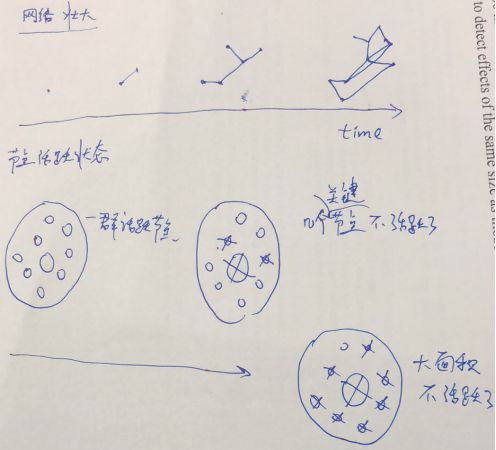 网络 壮大
time
节点活跃状态
一群活跃节点
关键
几个节点 不活跃了
大面积
不活跃了
to detect effects of the same size as